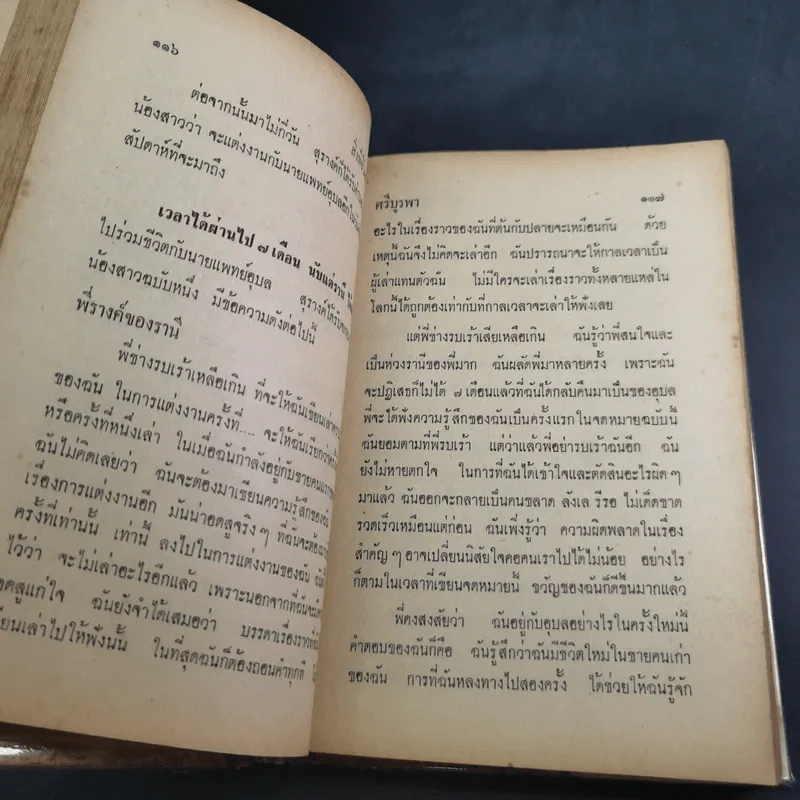 ๑๑๖
ต่อจากนั้นมาไม่กี่วัน สุรางค์ก็ได้รับ
น้องสาวว่า จะแต่งงานกับนายแพทย์อุบลอีกใน
สัปดาห์ที่จะมาถึง
เวลาได้ผ่านไป ๗ เดือน นับแต่รานี
ไปร่วมชีวิตกับนายแพทย์อุบล สุรางค์ได้รับ
น้องสาวฉบับหนึ่ง มีข้อความดังต่อไปนี้
พี่รางค์ของรานี
พี่ช่างรบเร้าเหลือเกิน ที่จะให้ฉันเขียนเล่า
ของฉัน ในการแต่งงานครั้งที่.... จะให้ฉันเรียกว่า
หรือครั้งที่หนึ่งเล่า ในเมื่อฉันกำลังอยู่กับชายคนแรก
ฉันไม่คิดเลยว่า ฉันจะต้องมาเขียนความรู้สึกของฉัน
เรื่องการแต่งงานอีก มันน่าอดสูจริงๆ ที่ฉันจะต้อง
ครั้งที่เท่านั้น เท่านี้ ลงไปในการแต่งงานของฉัน
ไว้ว่า จะไม่เล่าอะไรอีกแล้ว เพราะนอกจากที่ฉันจะ
อดสูแก่ใจ ฉันยังจำได้เสมอว่า บรรดาเรื่องราว
เขียนเล่าไปให้ฟังนั้น ในที่สุดฉันก็ต้องถอนคำทุกที
ศรีบูรพา ๑๑๗
อะไรในเรื่องราวของฉันที่ต้นกับปลายจะเหมือนกัน ด้วย
เหตุนี้ฉันจึงไม่คิดจะเล่าอีก ฉันปรารถนาจะให้กาลเวลาเป็น
ผู้เล่าแทนตัวฉัน ไม่มีใครจะเล่าเรื่องราวทั้งหลายแหล่ใน
โลกนี้ได้ถูกต้องเท่ากับที่กาลเวลาจะเล่าให้ฟังเลย
แต่พี่ช่างรบเร้าเสียเหลือเกิน ฉันรู้ว่าพี่สนใจและ
เป็นห่วงรานีของพี่มาก ฉันผลัดพี่มาหลายครั้ง เพราะฉัน
จะปฏิเสธก็ไม่ได้ ๗ เดือนแล้วที่ฉันได้กลับคืนมาเป็นของอุบล
พี่จะได้ฟังความรู้สึกของฉันเป็นครั้งแรกในจดหมายฉบับนี้
ฉันยอมตามที่พี่รบเร้า แต่ว่าแล้วพี่อย่ารบเร้าฉันอีก ฉัน
ยังไม่หายตกใจ ในการที่ฉันได้เข้าใจและตัดสินอะไรผิดๆ
มาแล้ว ฉันออกจะกลายเป็นคนขลาด ลังเล รีรอ ไม่เด็ดขาด
รวดเร็วเหมือนแต่ก่อน ฉันเพิ่งรู้ว่า ความผิดพลาดในเรื่อง
สำคัญๆ อาจเปลี่ยนนิสัยใจคอคนเราไปได้ไม่น้อย อย่างไร
ก็ตามในเวลาที่เขียนจดหมายนี้ ขวัญของฉันก็ดีขึ้นมากแล้ว
พี่คงสงสัยว่า ฉันอยู่กับอุบลอย่างไรในครั้งใหม่นี้
คำตอบของฉันก็คือ ฉันรู้สึกว่าฉันมีชีวิตใหม่ในชายคนเก่า
ของฉัน การที่ฉันหลงทางไปสองครั้ง ได้ช่วยให้ฉันรู้จัก